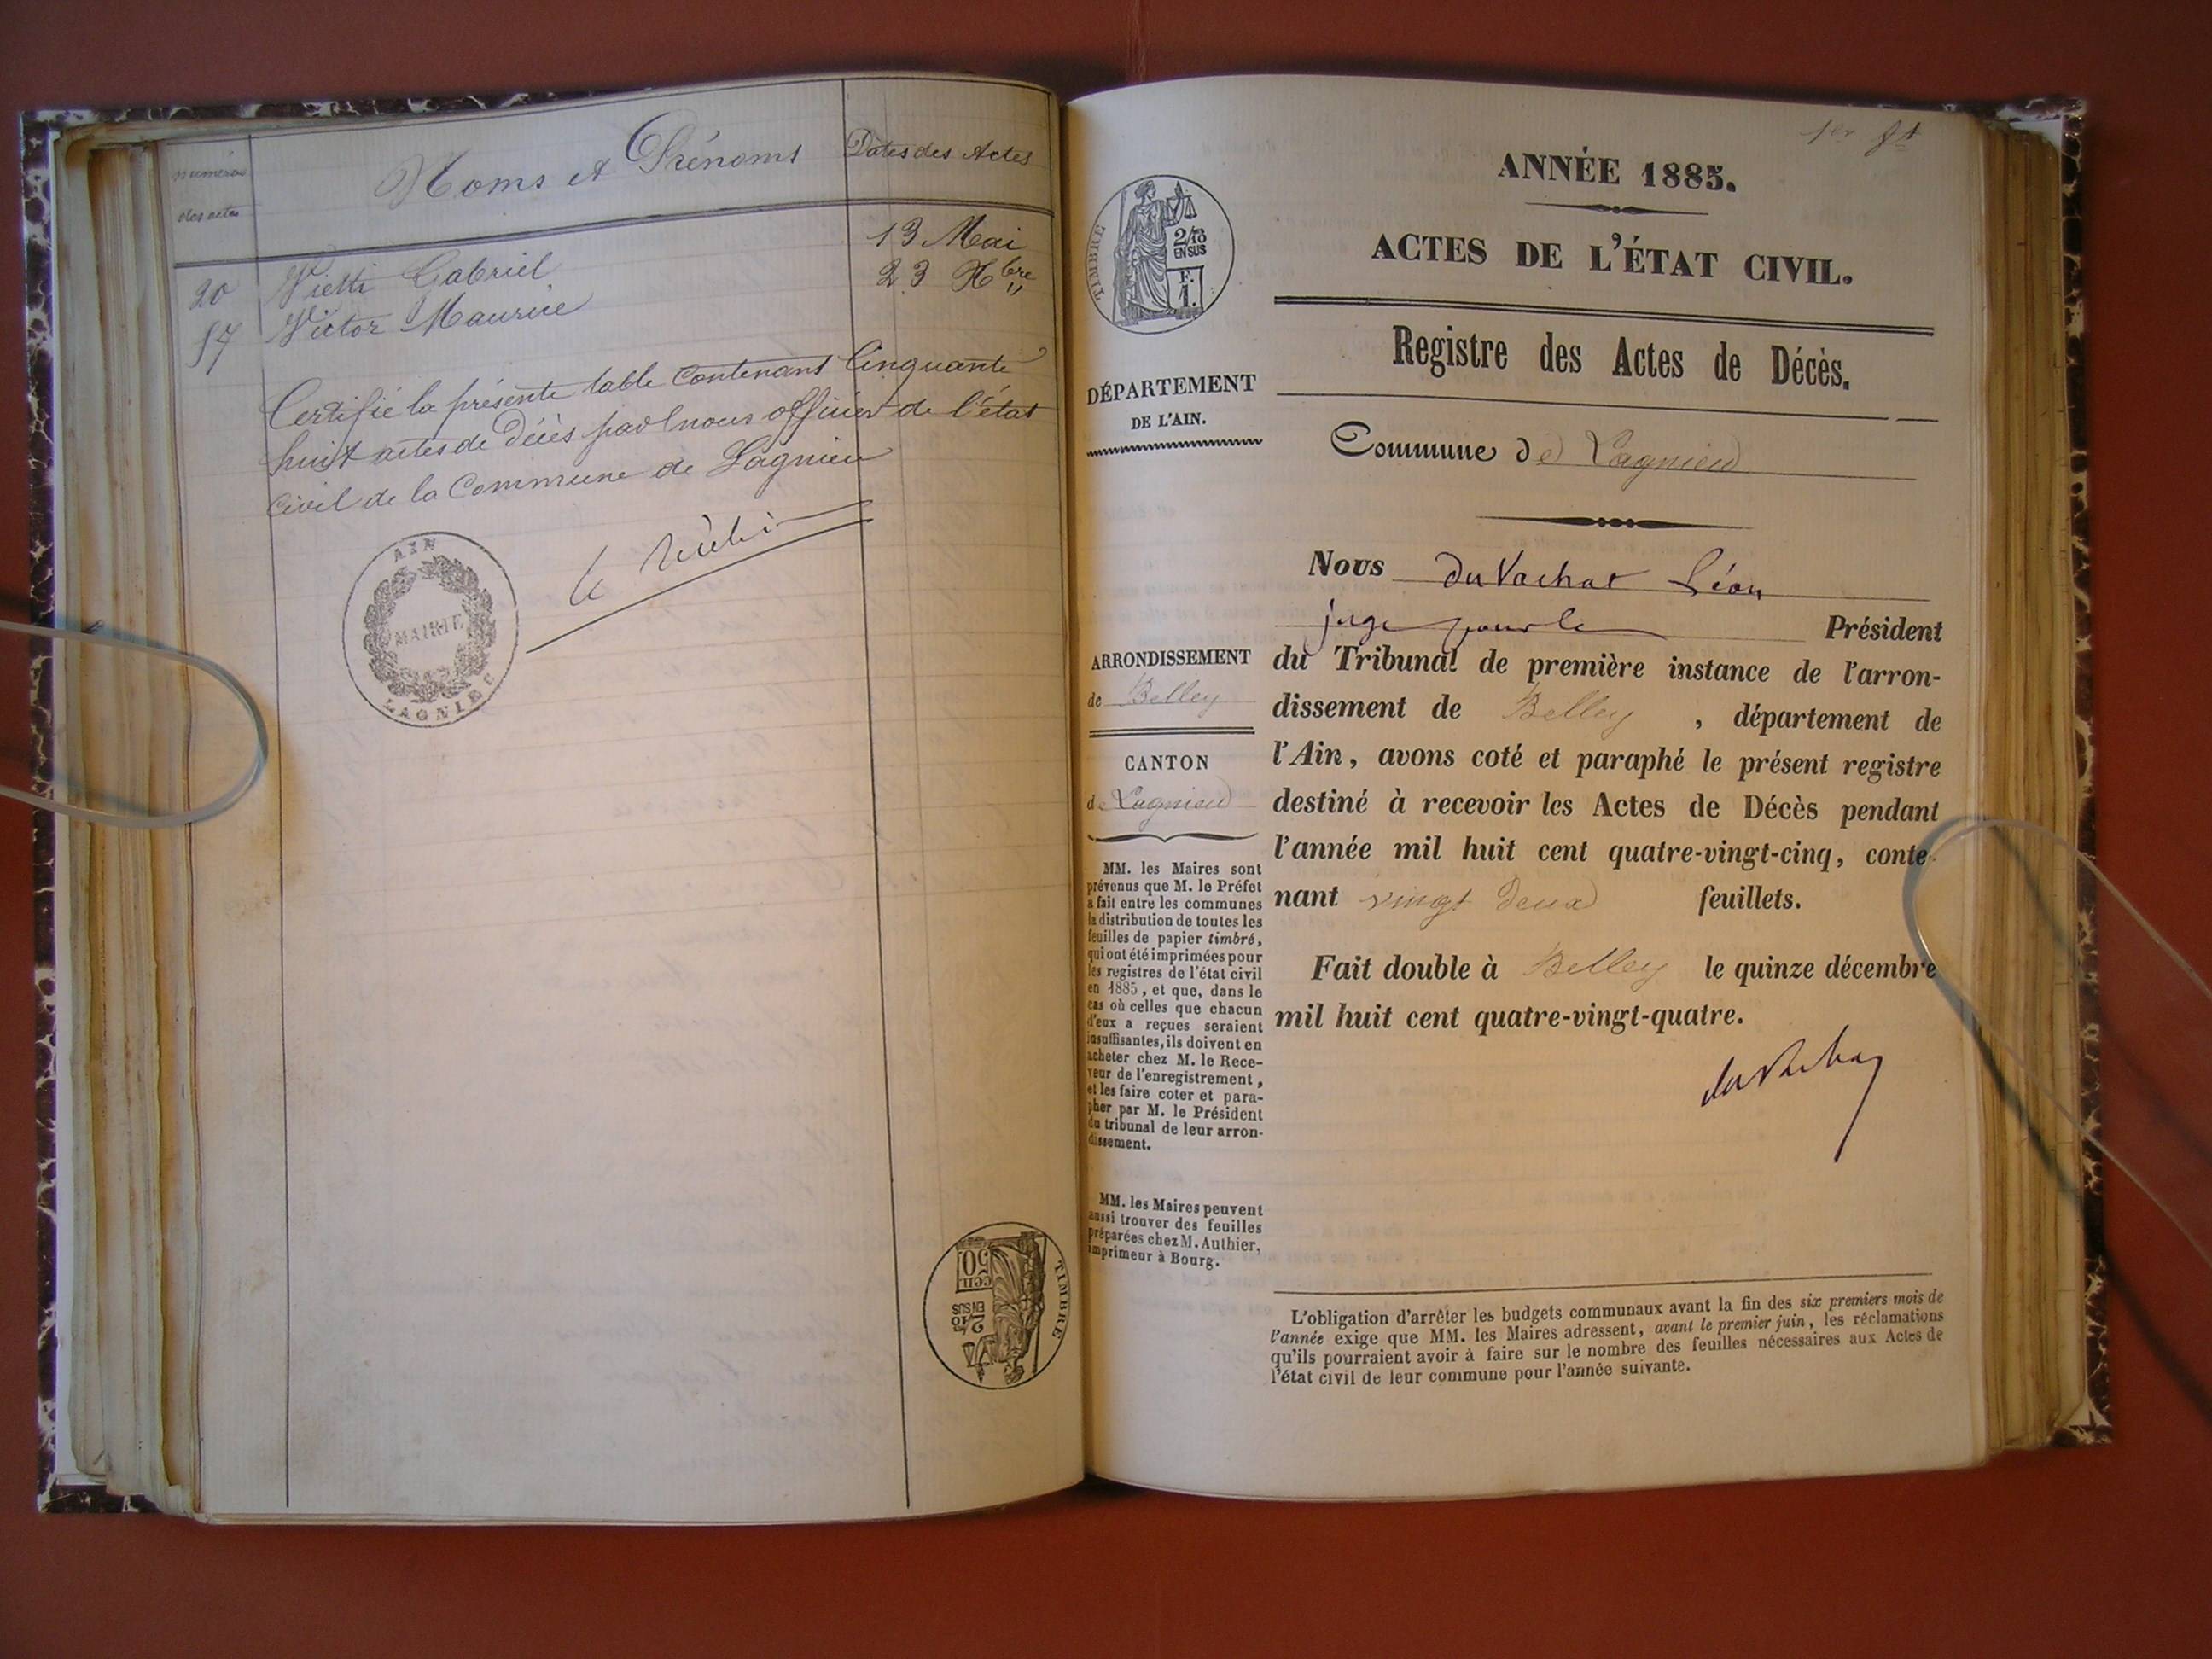 numéros
des actes
Noms et Prénoms
Dates des Actes
20 Vietti Gabriel 13 Mai
57 Victor Maurice 23 Xbre
Certifié la présente table contenant Cinquante
huit actes de Décès par nous officier de l'état
Civil de la Commune de Lagnieu
AIN
MAIRIE
LAGNIEU
TIMBRE
2/10
EN SUS
50
CEN.
1er ft
ANNÉE 1885.
ACTES DE L'ÉTAT CIVIL.
Registre des Actes de Décès.
Commune de Lagnieu
TIMBRE
2/10
EN SUS
F.
1.
DÉPARTEMENT
DE L'AIN.
ARRONDISSEMENT
de Belley
CANTON
de Lagnieu
MM. les Maires sont
prévenus que M. le Préfet
a fait entre les communes
la distribution de toutes les
feuilles de papier timbré,
qui ont été imprimées pour
les registres de l'état civil
en 1885, et que, dans le
cas où celles que chacun
d'eux a reçues seraient
insuffisantes, ils doivent en
acheter chez M. le Rece-
veur de l'enregistrement,
et les faire coter et para-
pher par M. le Président
du tribunal de leur arron-
dissement.
MM. les Maires peuvent
aussi trouver des feuilles
préparées chez M. Authier,
imprimeur à Bourg.
Nous du Vachat Léon
juge pour le Président
du Tribunal de première instance de l'arron-
dissement de Belley, département de
l'Ain, avons coté et paraphé le présent registre
destiné à recevoir les Actes de Décès pendant
l'année mil huit cent quatre-vingt-cinq, conte-
nant vingt deux feuillets.
Fait double à Belley le quinze décembre
mil huit cent quatre-vingt-quatre.
L'obligation d'arrêter les budgets communaux avant la fin des six premiers mois de
l'année exige que MM. les Maires adressent, avant le premier juin, les réclamations
qu'ils pourraient avoir à faire sur le nombre des feuilles nécessaires aux Actes de
l'état civil de leur commune pour l'année suivante.